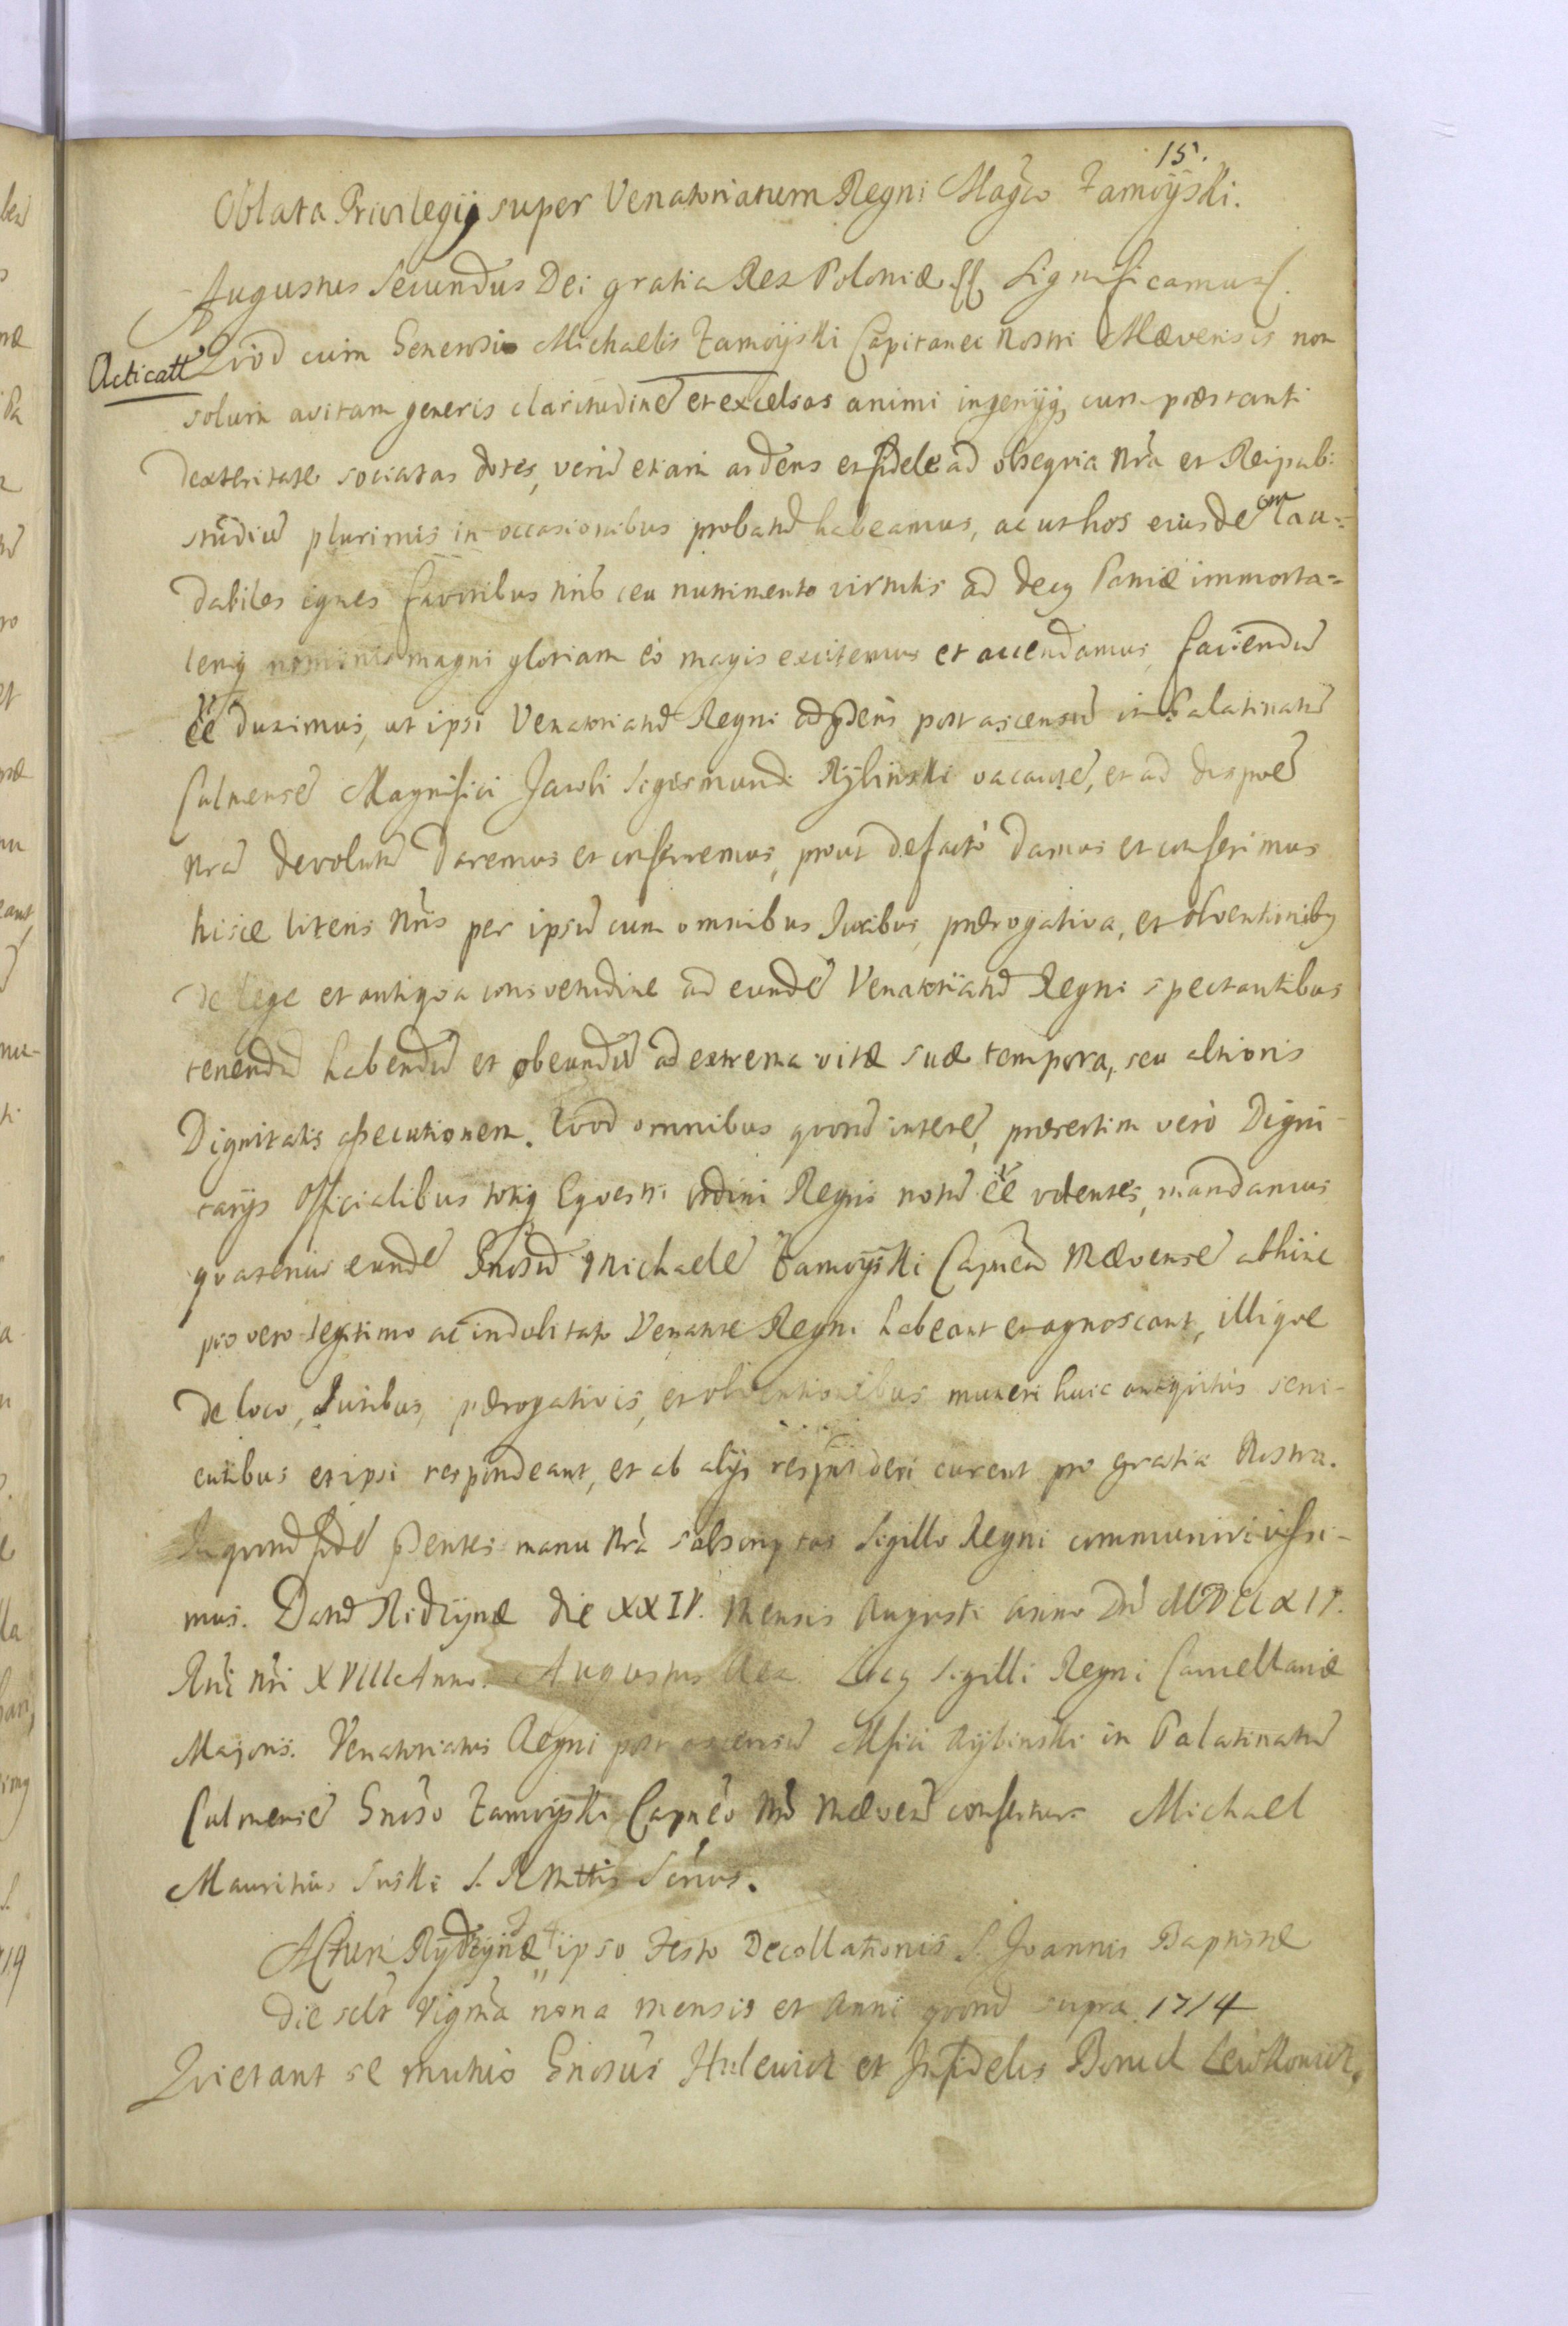 15.
Oblata Privilegij super Venatoriatum Regni Mag̃co Zamoÿski.
Augustus Secundus Dei gratia Rex Poloniæ Significamus
Acticatt
Qvod cum Generosi Michaelis Zamoÿski Capitanei Nostri Mævensis non
solum avitam generis claritudinẽ et excelsas animi ingenijq cum præstanti
dexteritate sociatas dotes, verũ etiam ardens et fidele ad obseqvia nr̃a et Reipub:
studiũ plurimis in occasionibus probatũ habeamus, ac ut hos eiusdem lau=
dabiles ignes favoribus nr̃is ceu nutrimento virtutis ad decq Patriæ immorta=
lemq nominis magni gloriam eò magis excitemus et accendamus, faciendũ
eẽ duximus, ut ipsi Venatoriatũ Regni ad p̃dens post ascensũ in Palatinatũ
Culmensẽ Magnifici Jacobi Sigismundi Rÿbinski vacantẽ, et ad disp̃oẽ
nrã devolutũ daremus et conferremus, prout de facto damus et conferimus
hisce literis Nr̃is per ipsũ cum omnibus Juribus, prærogativa, et obventionibq
de lege et antiqva consvetudine ad eundẽ Venatoriatũ Regni spectantibus
tenendũ habendũ et obeundũ ad extrema vitæ suæ tempora, seu altioris
Dignitatis assecutionem. Qvod omnibus qvorũ interẽ, præsertim verò Digni-
tarijs Officialibus totiq Eqvestri ordini Regni notũ eẽ volentes, mandamus
qvatenus eundẽ Gnosũ Michaelẽ Zamoÿski Capneũ Mævensẽ abhinc
pro vero legitimo ac indubitato Venatore Regni habeant et agnoscant, illiqve
de loco, Juribus, prærogativis, et obventionibus muneri huic antiqvitùs servi-
entibus et ipsi respondeant, et ab alijs responderi curent pro gratia Nostra.
In qvorũ fidẽ p̃sentes manu nr̃a subscriptas Sigillo Regni communiri iussi-
mus. Datũ Ridzÿnæ die XXIV. Mensis Augusti Anno Dñi MDCCXIV.
Rni nr̃i XVIII Anno. Augustus Rex Locq Sigilli Regni Cancellariæ
Majoris. Venatoriatus Regni post ascensũ Mfici Rÿbinski in Palatinatũ
Culmensẽ Gnoso Zamoÿski Capneo Nr̃o Mævenũ confertur. Michael
Mauritius Suski S. R Mttis Scr̃ius.
Actum Rydzÿnæ ipso Festo Decollationis S. Joannis Baptistæ
die sclt Vigma nona mensis et Anni qvorũ supra 1714
Qvietant se mutuò Gnosus Hulewicz et Infidelis Lewkowicz